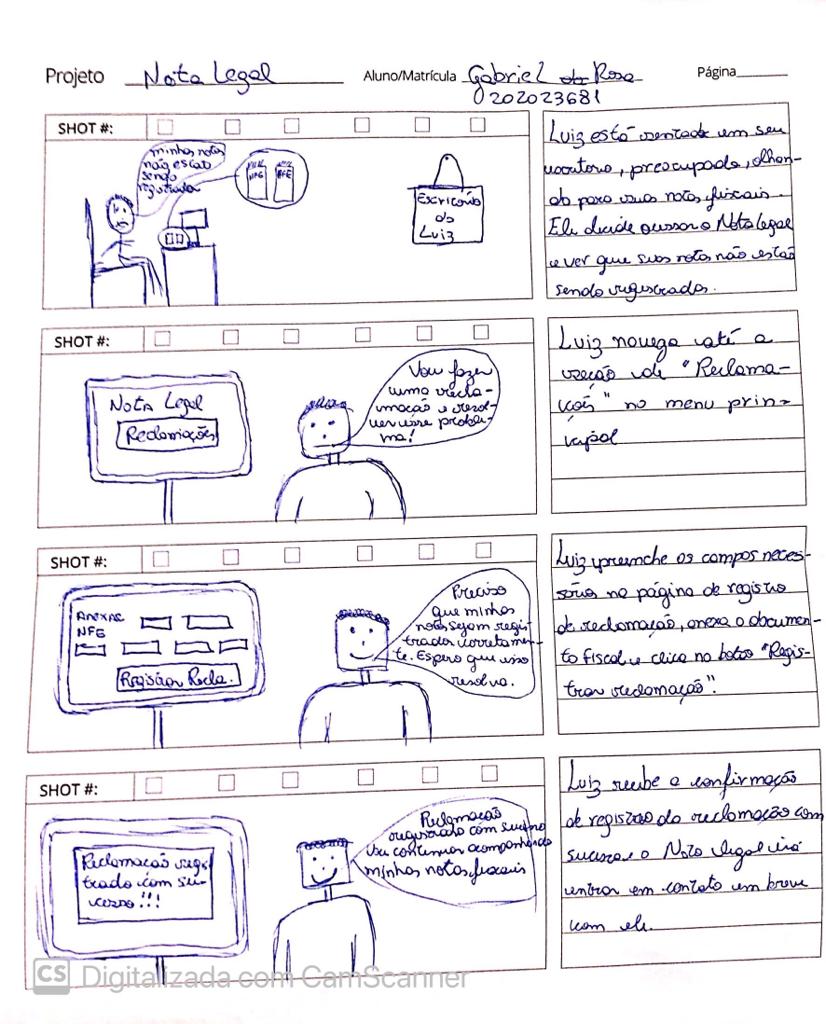 Projeto Nota Legal Aluno/Matrícula Gabriel da Rosa Página
202023681
SHOT #:
minhas notas
não estão
sendo
registradas
NFE NFE
Escritório
do
Luiz
Luiz está sentado em seu
escritorio, preocupado, olhan-
do para suas notas fiscais.
Ele decide acessar o Nota legal
e ver que suas notas não estão
sendo registradas.
SHOT #:
Nota Legal
Reclamações
Vou fazer
uma recla-
mação e resol-
ver esse proble-
ma!
Luiz navega até a
seção de "Reclama-
ções" no menu prin-
cipal
SHOT #:
Anexar
NFE
Registrar Recla.
Preciso
que minhas
notas sejam regis-
tradas corretamen-
te. Espero que isso
resolva.
Luiz preenche os campos neces-
sários na página de registro
de reclamação, anexa o documen-
to fiscal e clica no botão "Regis-
trar reclamação".
SHOT #:
Reclamação regis-
trada com su-
cesso!!!
Reclamação
registrada com sucesso
Vou continuar acompanhando
minhas notas fiscais
Luiz recebe a confirmação
de registro da reclamação com
sucesso e o Nota legal irá
entrar em contato em breve
com ele.
CS Digitalizada com CamScanner